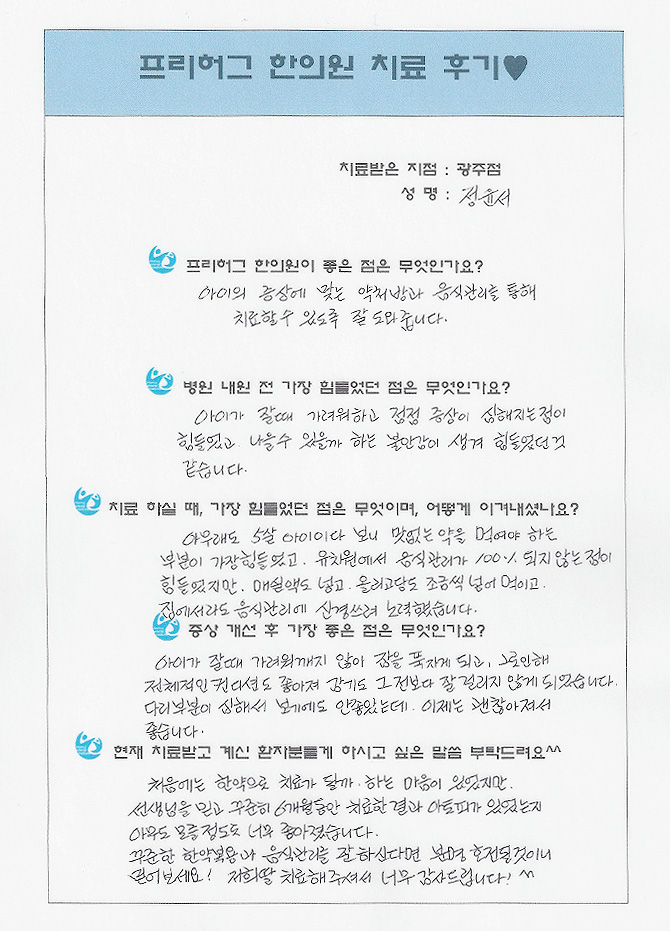 프리허그 한의원 치료 후기♥
치료받은 지점 : 광주점
성 명 : 정윤서
프리허그 한의원이 좋은 점은 무엇인가요?
아이의 증상에 맞는 약처방과 음식관리를 통해
치료할수 있도록 잘 도와줍니다.
병원 내원 전 가장 힘들었던 점은 무엇인가요?
아이가 잘때 가려워하고 점점 증상이 심해지는점이
힘들었고 나을수 있을까 하는 불안감이 생겨 힘들었던것
같습니다.
치료 하실 때, 가장 힘들었던 점은 무엇이며, 어떻게 이겨내셨나요?
아무래도 5살 아이이다 보니 맛없는 약을 먹여야 하는
부분이 가장힘들었고. 유치원에서 음식관리가 100% 되지않는점이
힘들었지만. 매실액도 넣고. 올리고당도 조금씩 넣어 먹이고.
집에서라도 음식관리에 신경쓰려 노력했습니다.
증상 개선 후 가장 좋은 점은 무엇인가요?
아이가 잘때 가려워깨지 않아 잠을 푹자게 되고, 그로인해
전체적인 컨디션도 좋아져 감기도 그전보다 잘 걸리지 않게 되었습니다.
다리부분이 심해서 보기에도 안좋았는데. 이제는 괜찮아져서
좋습니다.
현재 치료받고 계신 환자분들게 하시고 싶은 말씀 부탁드려요^^
처음에는 한약으로 치료가 될까. 하는 마음이 있었지만.
선생님을 믿고 꾸준히 6개월동안 치료한결과 아토피가 있었는지
아무도 모를정도로 너무 좋아졌습니다.
꾸준한 한약복용과 음식관리를 잘 하신다면 분명 호전될것이니
믿어보세요! 저희딸 치료해주셔서 너무 감사드립니다! ^^